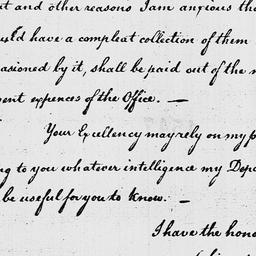 and other reasons I am anxious tha
uld have a compleat collection of them
asioned by it, shall be paid out of the
ent expences of the Office. —
Your Excellency may rely on my p
ng to you whatever intelligence my Depa
be useful for you to know. —
I have the hono